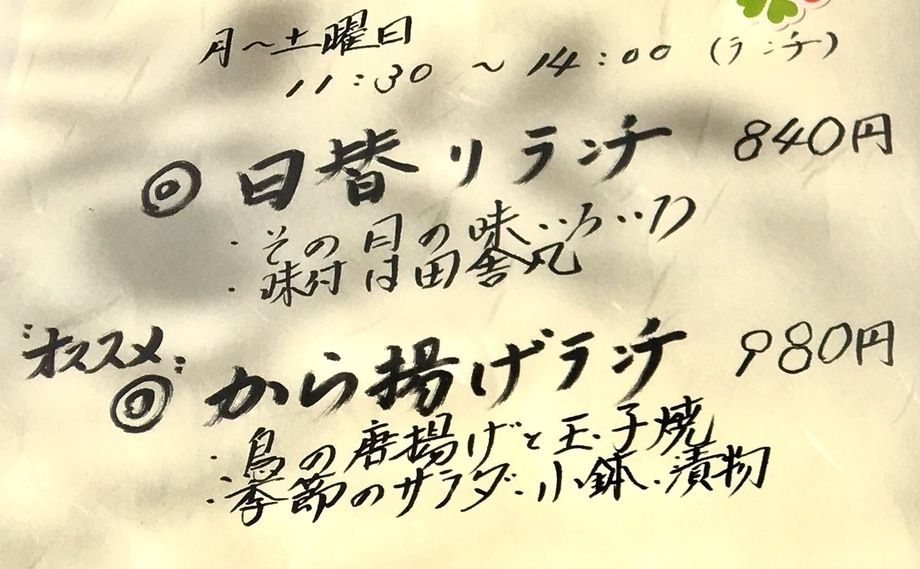 月～土曜日
11:30 ～ 14:00 (ランチ)
◎ 日替りランチ 840円
・その日の味‥いろ‥
・味付は田舎风
オススメ
◎ から揚げランチ 980円
・鳥の唐揚げと玉子焼
・季節のサラダ、小鉢・漬物